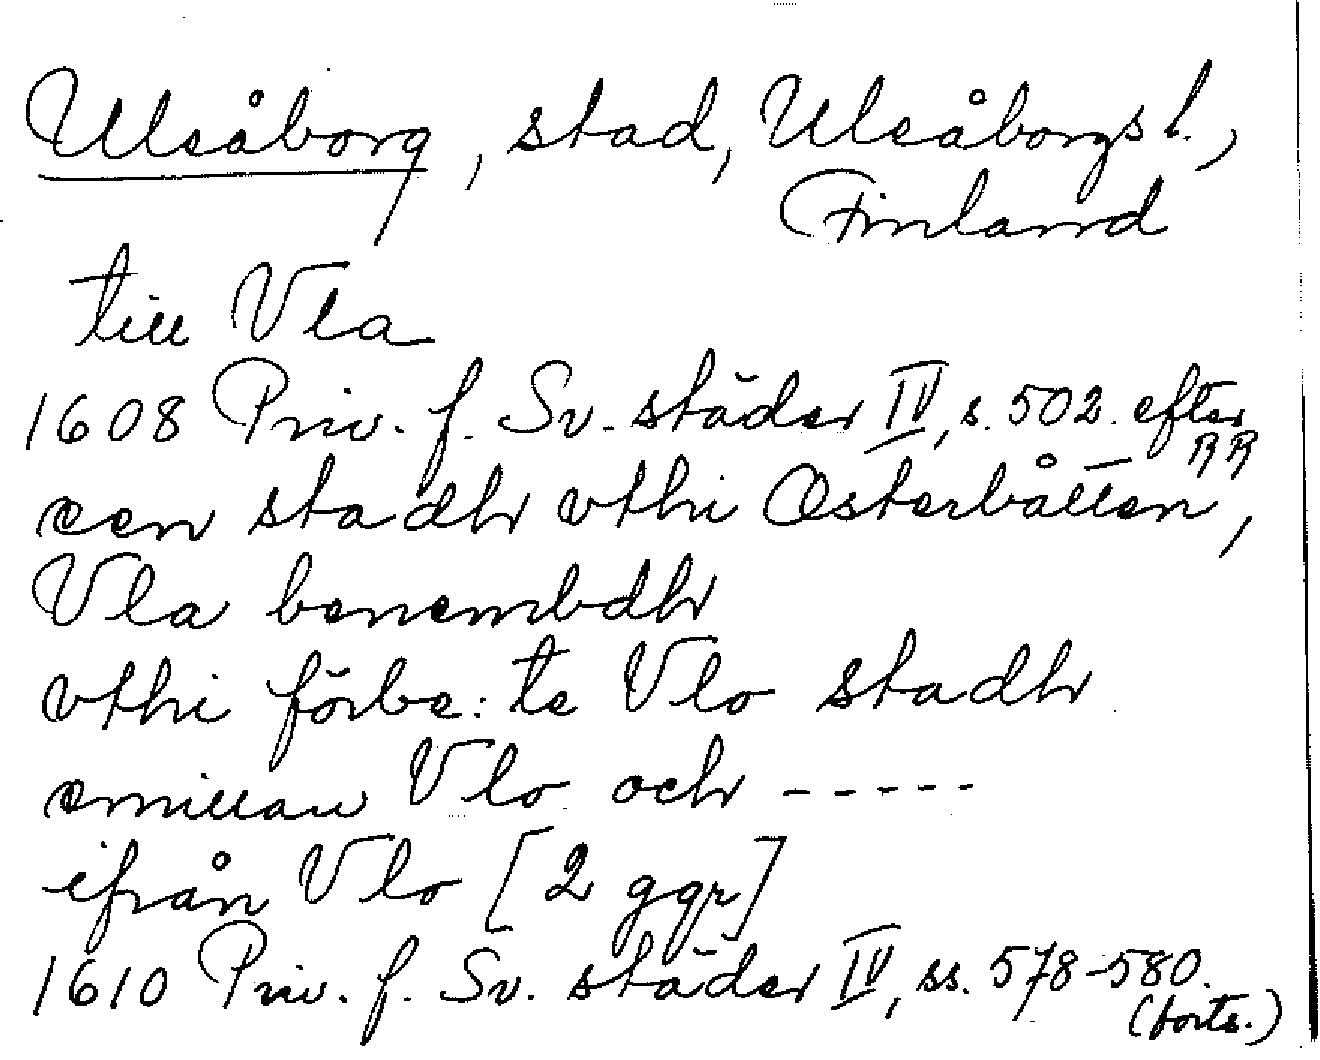 Uleåborg, stad, Uleåborgs l.,
Finland
till Vla
1608 Priv. f. Sv. städer IV, s. 502. efter RR
een stadh vthi Österbåtten,
Vla benembdh
vthi förbe: te Vlo stadh
emillan Vlo och -----
ifrån Vlo [2 ggr]
1610 Priv. f. Sv. städer IV, ss. 578-580.
(forts.)